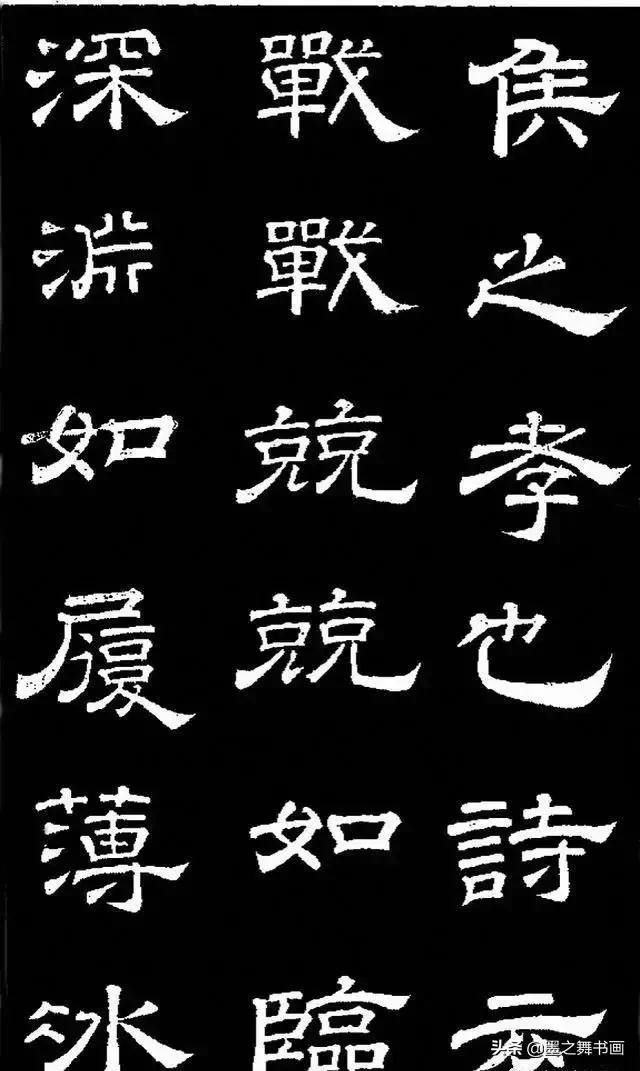 侯之孝也詩云
戰戰兢兢如臨
深淵如履薄冰
头条 @墨之舞书画